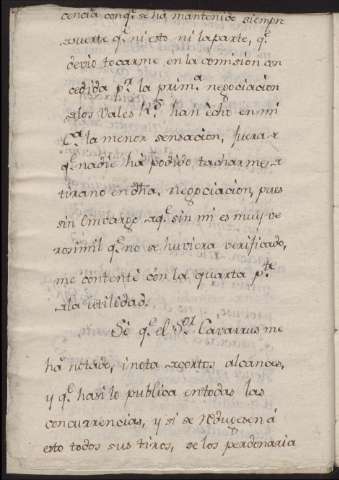 cencia con q.e se hà mantenido siempre
suerte q.e ni esto ni la parte, q.e
devio tocarme en la comision con
cedida p.a la prim.a negociacion
a los Vales R.s han echo en mi
C.a la menor sensacion, fuera
q.e nadie hà podido tacharme
tirano en dha. negociacion, pues
sin embargo a q.e sin mi es muy ve
rosimil q.e no se huviera verificado,
me contenté con la quarta p.te
a la utilidad.
Sé q.e el S.or Cavarrus me
hà notado, i nota a cortos alcances,
y q.e hasta lo publica en todas las
concurrencias, y si se reduxesen à
esto todos sus tiros, se los perdonaria